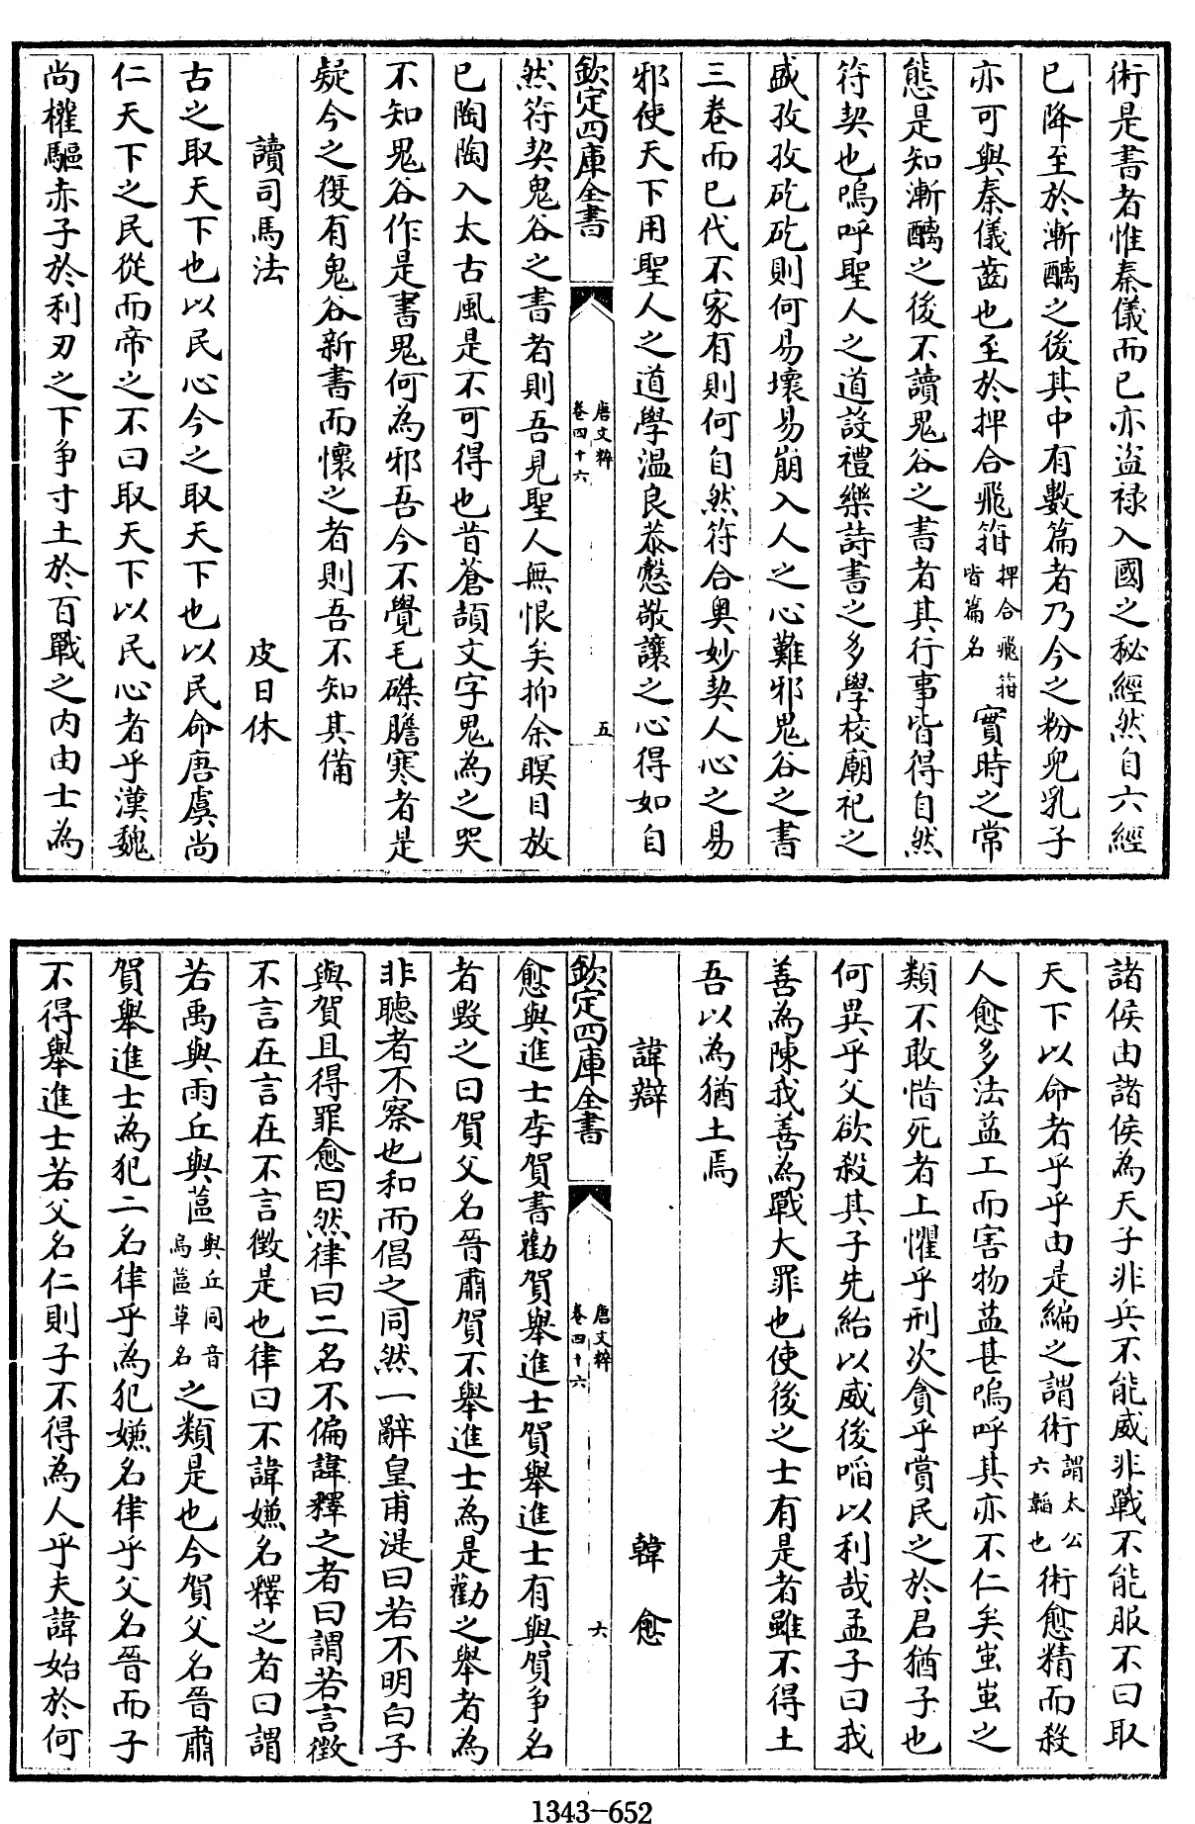 術是書者惟秦儀而已亦盜祿入國之秘經然自六經
已降至於漸醨之後其中有數篇者乃今之粉兒乳子
亦可與秦儀齒也至於捭合飛箝捭合飛箝皆篇名實時之常
態是知漸醨之後不讀鬼谷之書者其行事皆得自然
符契也嗚呼聖人之道設禮樂詩書之多學校廟祀之
盛孜孜矻矻則何易壞易崩入人之心難邪鬼谷之書
三卷而已代不家有則何自然符合奥妙契人心之易
邪使天下用聖人之道學温良恭慤敬讓之心得如自
欽定四庫全書
唐文粹
卷四十六
五
然符契鬼谷之書者則吾見聖人無恨矣抑余瞑目放
已陶陶入太古風是不可得也昔蒼頡文字鬼為之哭
不知鬼谷作是書鬼何為邪吾今不覺毛磔膽寒者是
疑今之復有鬼谷新書而懷之者則吾不知其備
讀司馬法 皮日休
古之取天下也以民心今之取天下也以民命唐虞尚
仁天下之民從而帝之不曰取天下以民心者乎漢魏
尚權驅赤子於利刃之下争寸土於百戰之内由士為
諸侯由諸侯為天子非兵不能威非戰不能服不曰取
天下以命者乎乎由是編之謂術謂太公六韜也術愈精而殺
人愈多法益工而害物益甚嗚呼其亦不仁矣蚩蚩之
類不敢惜死者上懼乎刑次貪乎賞民之於君猶子也
何異乎父欲殺其子先紿以威後啗以利哉孟子曰我
善為陳我善為戰大罪也使後之士有是者雖不得土
吾以為猶土焉
諱辯 韓愈
欽定四庫全書
唐文粹
卷四十六
六
愈與進士李賀書勸賀舉進士賀舉進士有與賀争名
者毁之曰賀父名晉肅賀不舉進士為是勸之舉者為
非聽者不察也和而倡之同然一辭皇甫湜曰若不明白子
與賀且得罪愈曰然律曰二名不偏諱釋之者曰謂若言徵
不言在言在不言徵是也律曰不諱嫌名釋之者曰謂
若禹與雨丘與蓲與丘同音烏蓲草名之類是也今賀父名晉肅
賀舉進士為犯二名律乎為犯嫌名律乎父名晉而子
不得舉進士若父名仁則子不得為人乎夫諱始於何
1343-652